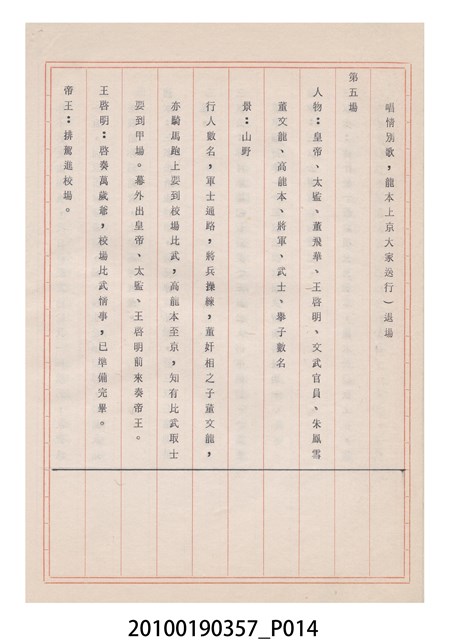 唱情別歌，龍本上京大家送行）退場
第五場
人物：皇帝、太監、董飛華、王啓明、文武官員、朱鳳雪
董文龍、高龍本、將軍、武士、擧子數名
景：山野
行人數名，軍士通路，將兵操練，董奸相之子董文龍，
亦騎馬跑上要到校場比武，高龍本至京，知有比武取士
要到甲場。幕外出皇帝、太監、王啓明前來奏帝王。
王啓明：啓奏萬歲爺，校場比武情事，已準備完畢。
帝王：排駕進校場。
20100190357_P014